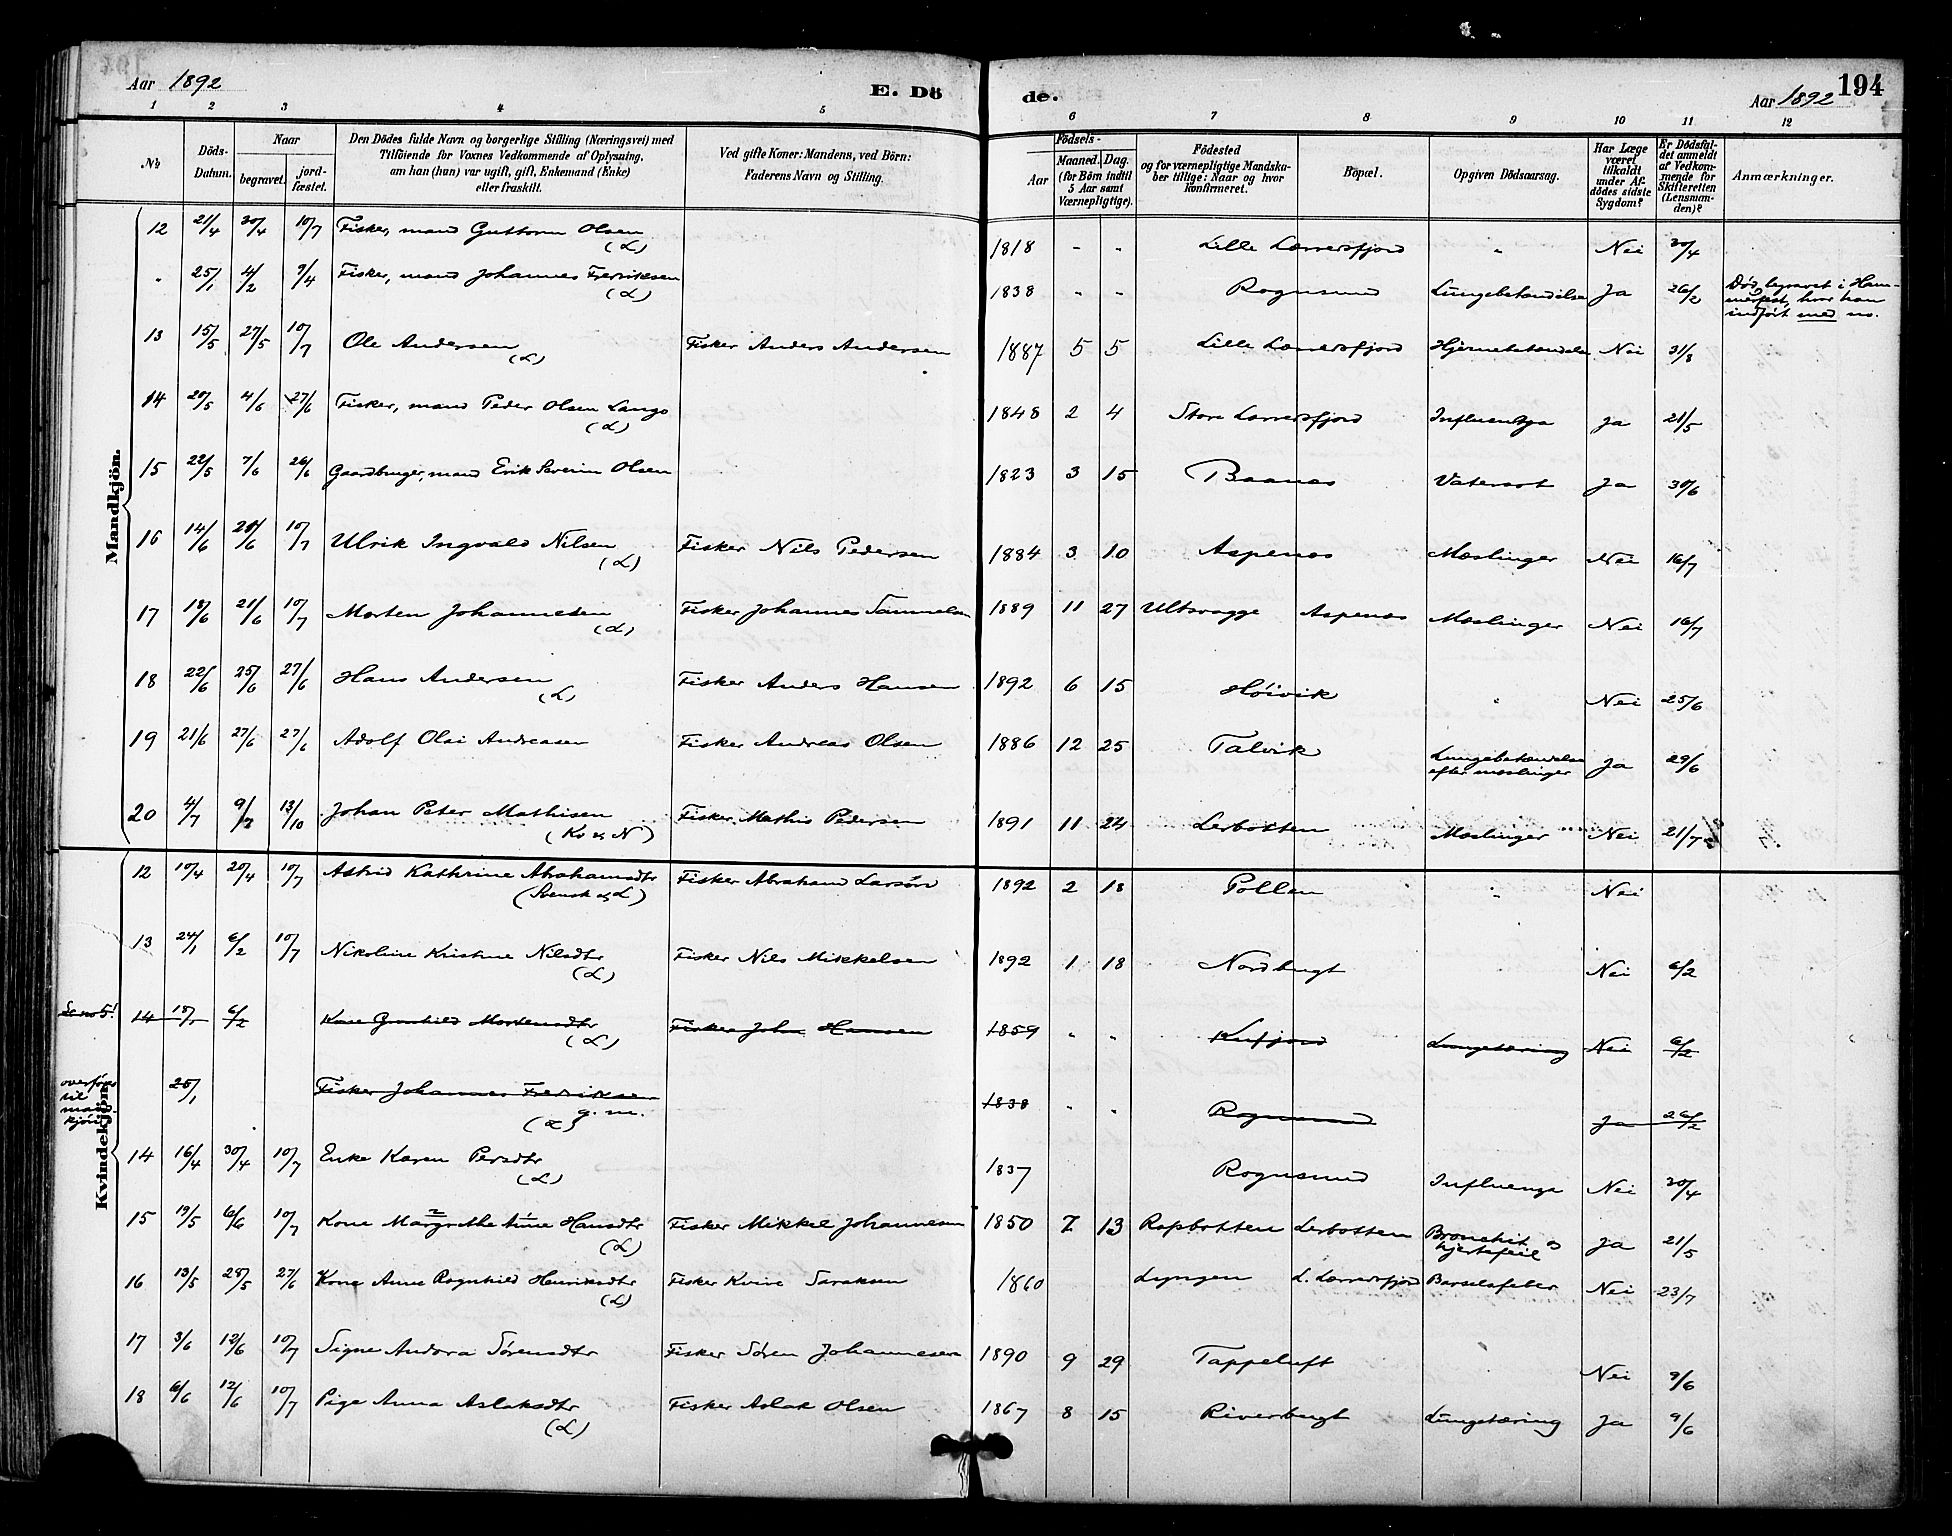 Aar 1892
E. Dö
de.
Aar 1892
194
1 2 3 4 5 6 7 8 9 10 11 12
No
Döds-
Datum.
Naar
begravet.
jord-
fæstet.
Den Dödes fulde Navn og borgerlige Stilling (Næringsvei) med
Tilföiende for Voxnes Vedkommende af Oplysning,
om han (hun) var ugift, gift, Enkemand (Enke)
eller fraskilt.
Ved gifte Koner: Mandens, ved Börn:
Faderens Navn og Stilling.
Födsels-
Aar
Maaned. Dag.
(for Börn indtil
5 Aar samt
Værnepligtige).
Födested
og for værnepligtige Mandska-
ber tillige: Naar og hvor
konfirmeret.
Bopæl.
Opgiven Dödsaarsag.
Har Læge
været
tilkaldt
under Af-
dödes sidste
Sygdom?
Er Dödsfal-
det anmeldt
af Vedkom-
mende for
Skifteretten
(Lensman-
den)?
Anmærkninger.
Mandkjön.
12 21/4 30/4 10/7 Fisker, mand Guttorm Olsen (L) 1818 - - Lille Lerresfjord " Nei 30/4
" 25/1 4/2 9/4 Fisker, mand Johannes Fredriksen (L) 1838 - - Rognsund Lungebetændelse Ja 26/2 Død, begravet i Ham-
merfest, hvor han
indført med no.
13 15/5 27/5 10/7 Ole Andersen (L) Fisker Anders Andersen 1887 5 5 Lille Lerresfjord Hjernebetændelse Nei 31/8
14 20/5 4/6 27/6 Fisker, mand Peder Olsen Lango (L) 1848 2 4 Store Lerresfjord Influentza Ja 21/5
15 22/5 7/6 26/6 Gaardbruger, mand Erik Severin Olsen 1823 3 15 Baanes Vatersot Ja 30/6
16 14/6 20/6 10/7 Ulrik Ingvald Nilsen (L) Fisker Nils Pedersen 1884 3 10 Aspenes Mæslinger Nei 16/7
17 18/6 21/6 10/7 Morten Johannesen (L) Fisker Johannes Sammelsen 1889 11 27 Ultsvagge Aspenes Mæslinger Nei 16/7
18 22/6 25/6 27/6 Hans Andersen (L) Fisker Anders Hansen 1892 6 15 Høivik " Nei 25/6
19 21/6 27/6 27/6 Adolf Olai Andreasen Fisker Andreas Olsen 1886 12 25 Talvik Lungebetændelse
efter mæslinger Ja 29/6
20 4/7 9/7 13/10 Johan Peter Mathisen (Kv og N) Fisker Mathis Pedersen 1891 11 24 Lerbotten Mæslinger Nei 21/7
Kvindekjön.
12 10/4 20/4 10/7 Astrid Kathrine Abrahamsdtr (Svensk og L) Fisker Abraham Larsøn 1892 2 18 Pollen " Nei
13 24/1 6/2 10/7 Nikoline Kristine Nilsdtr (L) Fisker Nils Mikkelsen 1892 1 18 Nordbugt Nei 6/2
Se no 5! 14 18/1 6/2 Kone Gunhild Mortensdtr (L) Fisker John Hansen 1859 " " Kufjord Lungetæring Nei 6/2
overføres
til
mand-
kjön 25/1 Fisker Johannes Fredriksen g. m. (L) 1838 " " Rognsund Ja 26/2
14 16/4 30/4 10/7 Enke Karen Persdtr (L) 1837 Rognsund Influenza Nei 30/4
15 19/5 6/6 10/7 Kone Margrethe Aine Hansdtr (L) Fisker Mikkel Johannesen 1850 7 13 Rapbotten Lerbotten Bronchit og
hjertefeil Ja 21/5
16 13/5 28/5 27/6 Kone Anne Ragnhild Henriksdtr (L) Fisker Kvive Saraksen 1860 Lyngen L. Lerresfjord Barselsfeber Nei 23/7
17 3/6 12/6 10/7 Signe Andora Sørensdtr Fisker Søren Johannesen 1890 9 29 Tappeluft Nei 9/6
18 6/6 12/6 10/7 Pige Anna Aslaksdtr (L) Fisker Aslak Olsen 1867 8 15 Riverbugt Lungetæring Ja 9/6